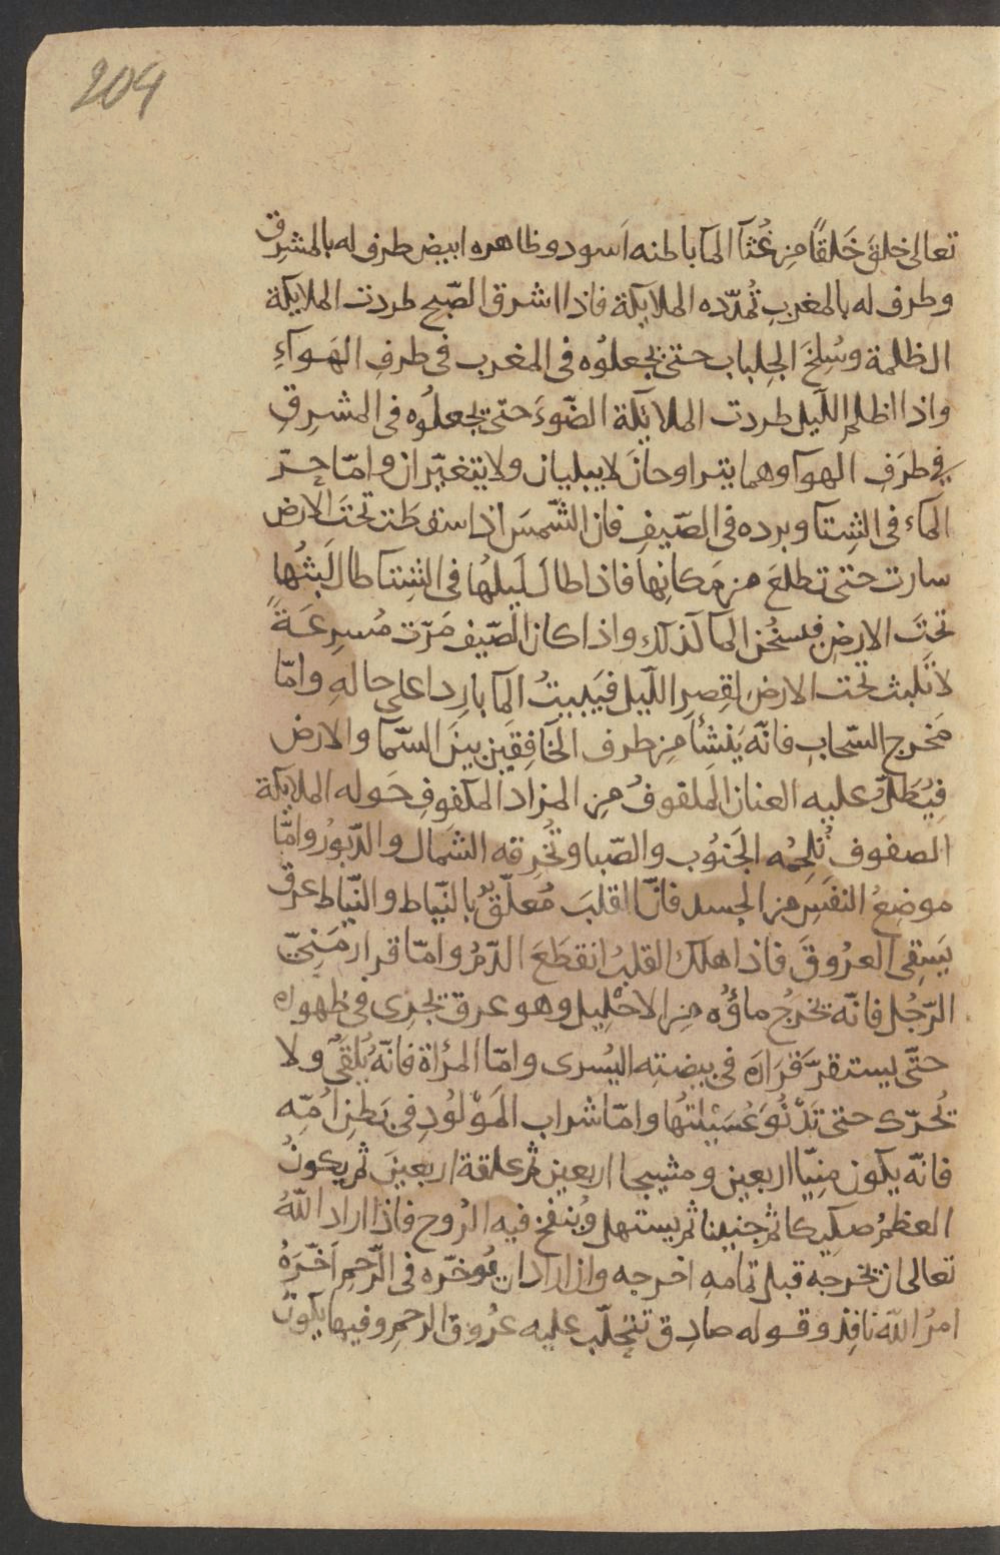 204
تعالى خلقَ خَلقًا مِن غُثآ المآ باطنه اَسود وظاهره ابيض طرف له بالمشرِق
وطرف له بالمغربِ تُمدّده الملايكة فاذا اشرق الصّبح طردت الملايكة
الظلمة وسُلِخَ الجِلباب حتى يجعلوُه فى المغرب فى طرفِ الهَوآءِ
واذا اظلم اللّيل طردت الملايكة الضّوءَ حتّى يجعلُوه فى المشرِقِ
فى طرَفِ الهوآ وهما يتراوحانَ لا يبليان ولا يتغيّران وامّا حرّ
المآء فى الشِتآ وبرده فى الصّيفِ فان الشّمسَ اذا سقطَت تحتَ الارض
سارت حتى تطلعَ من مَكانِها فاذا طالَ لَيلهُا فى الشِتآ طال لَبثُها
تحتَ الارضِ فسخُن المآ لذلك واذا كان الصّيف مَرّت مُسرِعَةً
لا تَلبث تحت الارض لِقِصرِ اللّيل فيَبيتُ المآ بارِدا على حالهِ وامّا
مَخرج السّحابِ فانّه يَنشأ مِن طرف الخَافِقَين بينَ السّمآ والارض
فيُظلّ عليه العنان الملفوفُ مِن المزاد المكفوفِ حَوله الملايكة
الصفوف تُلحِمُه الجَنوُب والصّبا وتُخرِقه الشمال والدّبورُ وامّا
موضِعُ النفَسِ من الجسد فانّ القلبَ مُعلّقٌ بالنّياط والنّياط عرق
يَسقِى العرُوقَ فاذا هلك القلبُ انقطَعَ الدّمُ وامّا قرار مَنِىّ
الرّجُل فانّه يخرجُ ماؤُه مِن الاحْلِيل وهو عرق يجرِى فى ظهره
حتّى يستقرّ قرَارَه فى بيضتِه اليُسرى وامّا المرأة فانّهُ يُلقى ولا
يُحرّك حتى تَدْنُوَ عُسَيْلتهُا وامّا شراب المَوْلوُدِ فى بَطنِ اُمّه
فانّه يكون مِنيّا اربعين ومشيجا اربعين ثم علقة اربعينَ ثم يكونُ
العظمُ صكيكا ثم جنينا ثم يستهل ويُنفخ فيه الرُوح فاذا اراد اللهُ
تعالى ان يخرجه قبل تمامهِ اخرجه وان اراد ان يُوخّره فى الرّحمِ اَخّرَهُ
امرُ الله نافِذ وقوله صادِق تتحلّب عليه عرُوق الرحم وفيها يكونُ